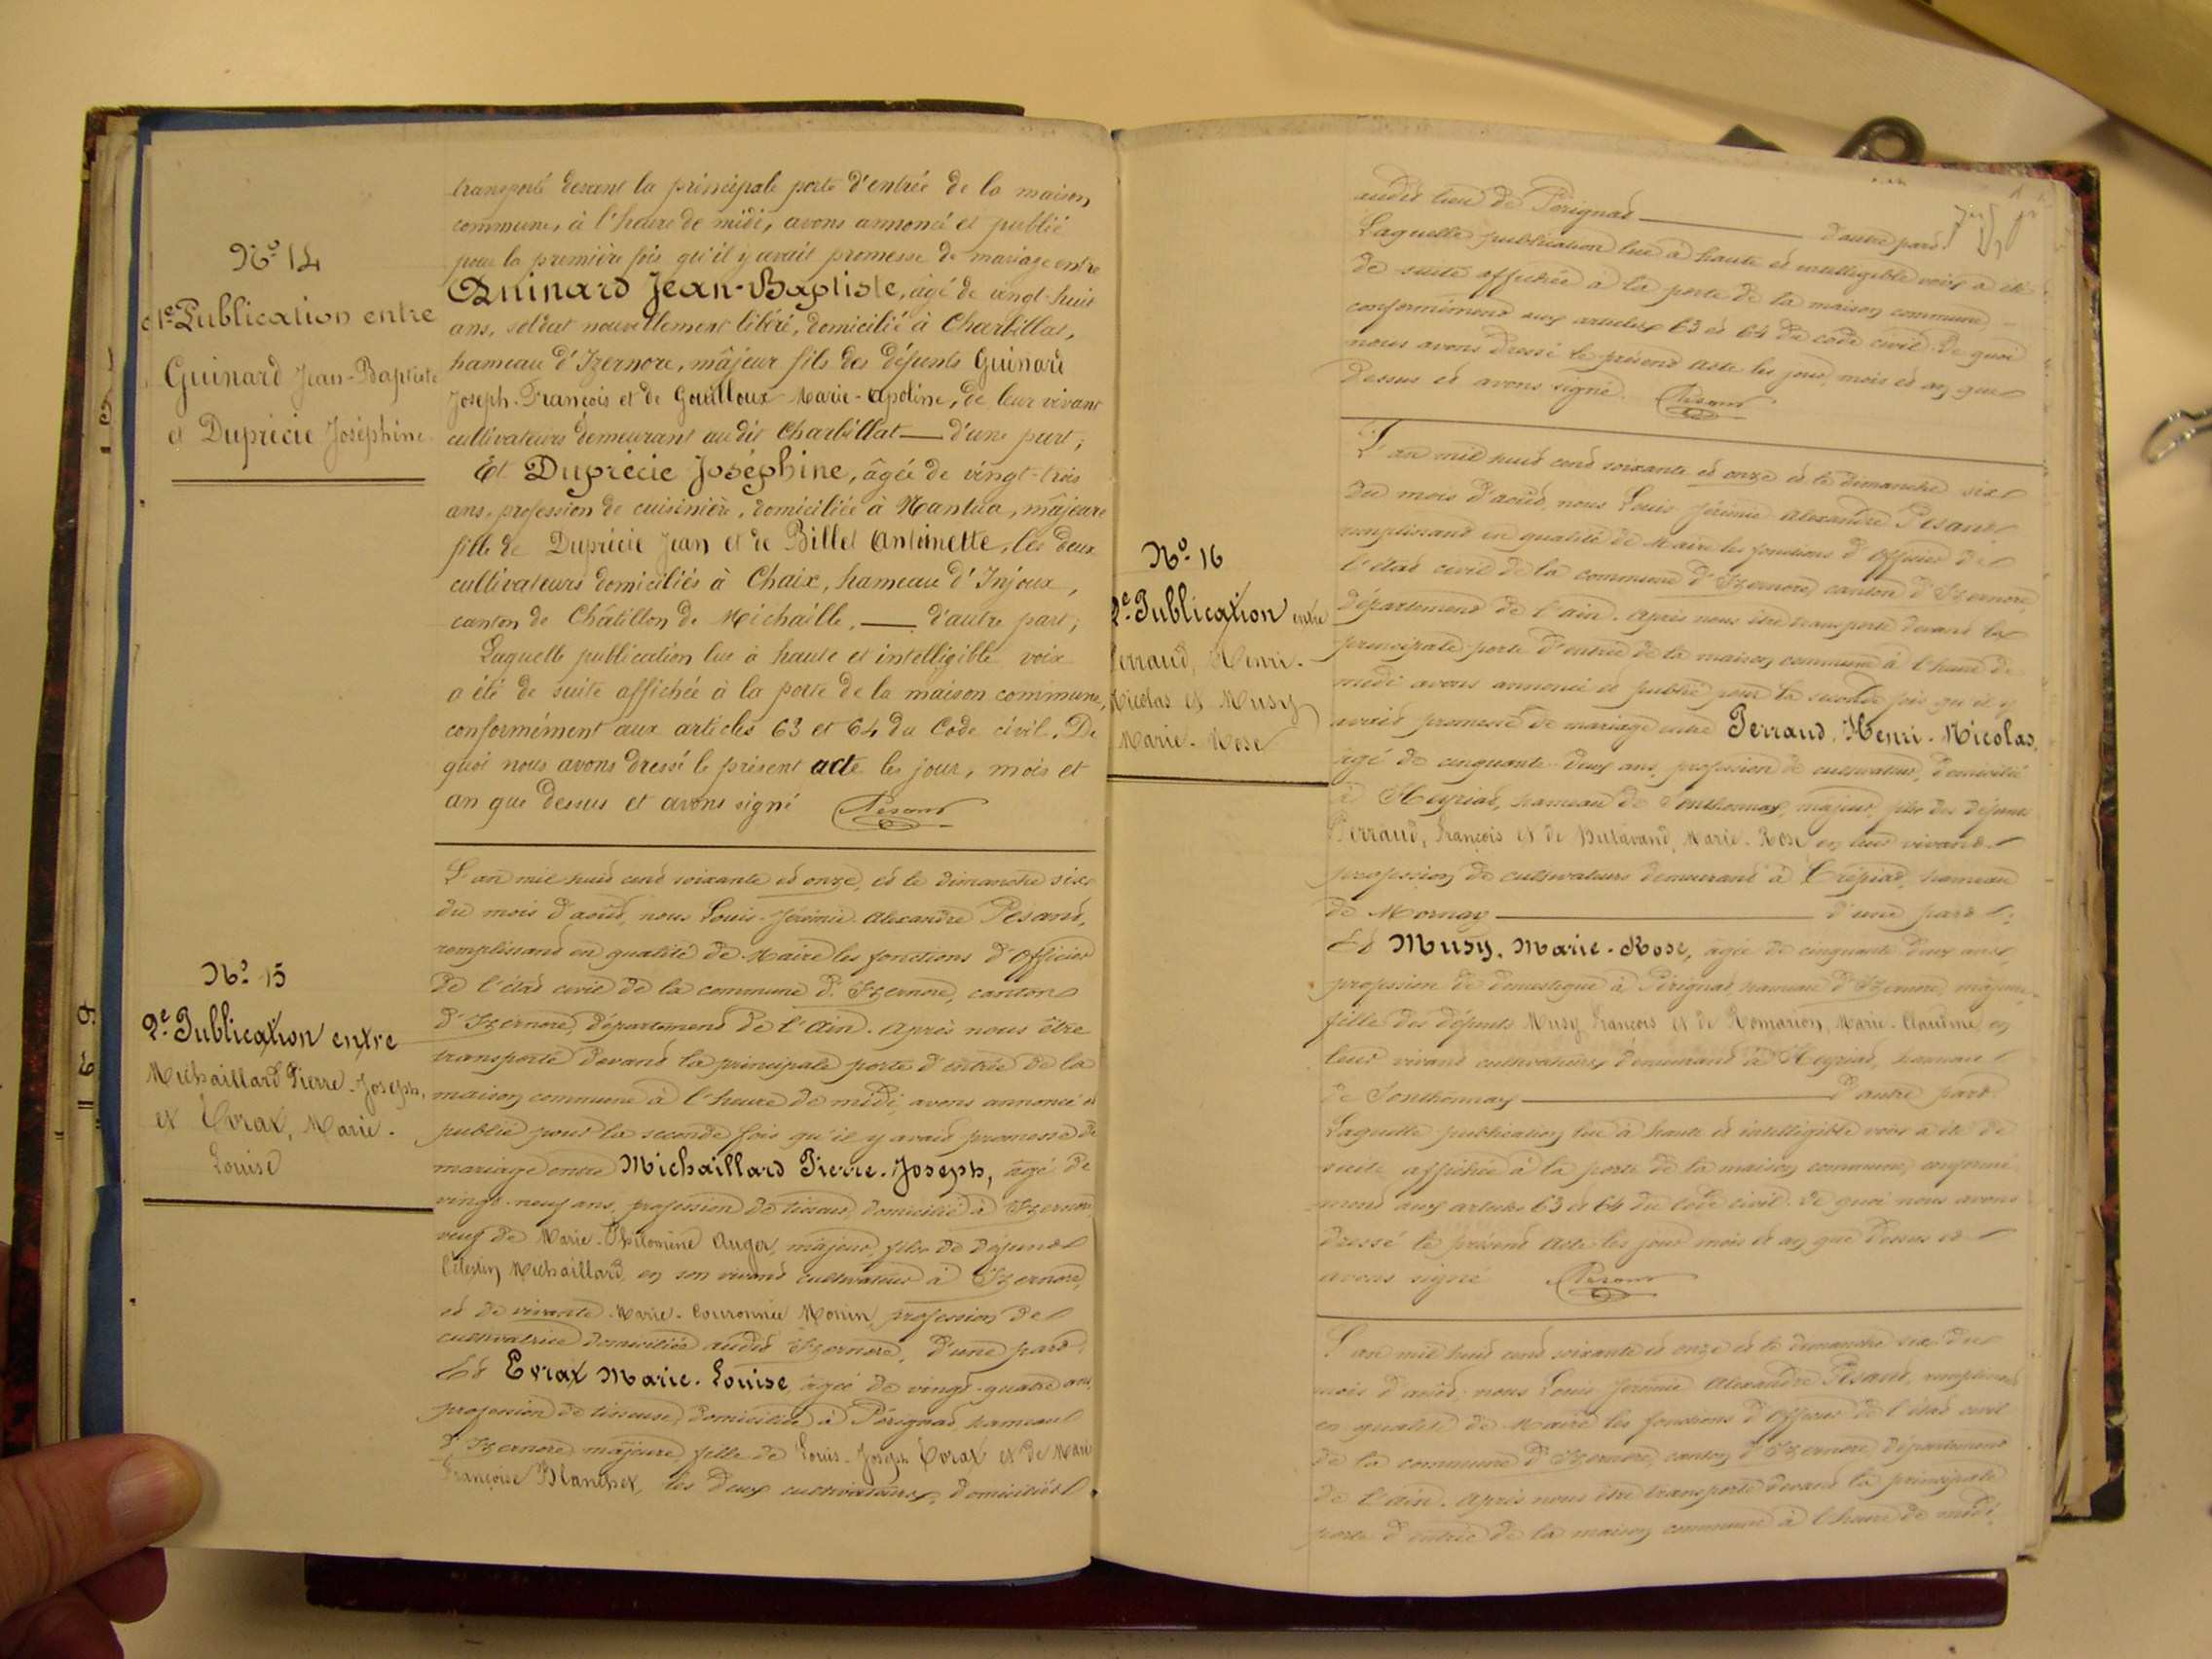 transporté devant la principale porte d'entrée de la maison
commune, à l'heure de midi, avons annoncé et publié
pour la première fois qu'il y avait promesse de mariage entre
Guinard Jean-Baptiste, agé de vingt-huit
ans, soldat nouvellement libéré, domicilié à Charbillat,
hameau d'Izernore, mâjeur fils des défunts Guinard
Joseph-François et de Gouilloux Marie-Apoline, de leur vivant
cultivateurs demeurant au dit Charbillat — d'une part;
Et Duprécie Joséphine, âgée de vingt-trois
ans, profession de cuisinière, domiciliée à Nantua, mâjeure
fille de Duprécie Jean et de Billet Antoinette, les deux
cultivateurs domiciliés à Chaix, hameau d'Injoux,
canton de Châtillon de Michaille, — d'autre part;
Laquelle publication lue à haute et intelligible voix
a été de suite affichée à la porte de la maison commune,
conformément aux articles 63 et 64 du Code civil. De
quoi nous avons dressé le présent acte les jour, mois et
an que dessus et avons signé Pesant
N° 14
1e Publication entre
Guinard Jean-Baptiste
et Duprécie Joséphine
L'an mil huit cent soixante et onze, et le dimanche six
du mois d'août, nous Louis-Jérémie-Alexandre Pesant,
remplissant en qualité de Maire les fonctions d'Officier
de l'état civil de la commune d'Izernore, canton
d'Izernore, département de l'Ain. Après nous être
transporté devant la principale porte d'entrée de la
maison commune à l'heure de midi, avons annoncé et
publié pour la seconde fois qu'il y avait promesse de
mariage entre Michaillard Pierre-Joseph, âgé de
vingt-neuf ans, profession de tisseur, domicilié à Izernore,
veuf de Marie-Philomène Auger, mâjeur, fils de défunt
Célestin Michaillard en son vivant cultivateur à Izernore,
et de vivante Marie-Couronnée Monin, profession de
cultivatrice domiciliée audit Izernore, d'une part.
Et Evrax Marie-Louise, agée de vingt-quatre ans,
profession de tisseuse, domiciliée à Pérignat, hameau
d'Izernore, mâjeure, fille de Louis-Joseph Evrax et de Marie
Françoise Blanchet, les deux cultivateurs, domiciliés
N° 15
2e Publication entre
Michaillard Pierre-Joseph,
et Evrax, Marie-
Louise
audit lieu de Pérignat — d'autre part.
Laquelle publication lue à haute et intelligible voix a été
de suite affichée à la porte de la maison commune,
conformément aux articles 63 et 64 du code civil. De quoi
nous avons dressé le présent acte les jour, mois et an que
dessus et avons signé. Pesant
L'an mil huit cent soixante et onze et le dimanche six
du mois d'août, nous Louis Jérémie Alexandre Pesant
remplissant en qualité de Maire les fonctions d'Officier de
l'état civil de la commune d'Izernore, canton d'Izernore
département de l'Ain. Après nous être transporté devant la
principale porte d'entrée de la maison commune à l'heure de
midi avons annoncé et publié pour la seconde fois qu'il y
avait promesse de mariage entre Perraud, Henri-Nicolas,
âgé de cinquante-deux ans, profession de cultivateur, domicilié
à Heyriat, hameau de Sonthonnax, majeur, fils des défunts
Perraud, François et de Marie-Rose en leur vivant
profession de cultivateurs demeurant à Crépiat, hameau
de Mornay — d'une part;
Et Musy, Marie-Rose, agée de cinquante deux ans,
profession de domestique à Pérignat, hameau d'Izernore, majeure,
fille des défunts Musy François et de Romarion, Marie-Claudine en
leur vivant cultivateurs demeurant à Heyriat, hameau
de Sonthonnax — d'autre part
Laquelle publication lue à haute et intelligible voix a été de
suite affichée à la porte de la maison commune, conformé
ment aux articles 63 et 64 du code civil. De quoi nous avons
dressé le présent acte les jour mois et an que dessus et
avons signé Pesant
N° 16
2e Publication entre
Perraud, Henri-
Nicolas et Musy
Marie-Rose
L'an mil huit cent soixante et onze et le dimanche six du
mois d'août; nous Louis Jérémie Alexandre Pesant, remplissant
en qualité de Maire les fonctions d'Officier de l'état civil
de la commune d'Izernore, canton d'Izernore, département
de l'Ain. Après nous être transporté devant la principale
porte d'entrée de la maison commune à l'heure de midi,